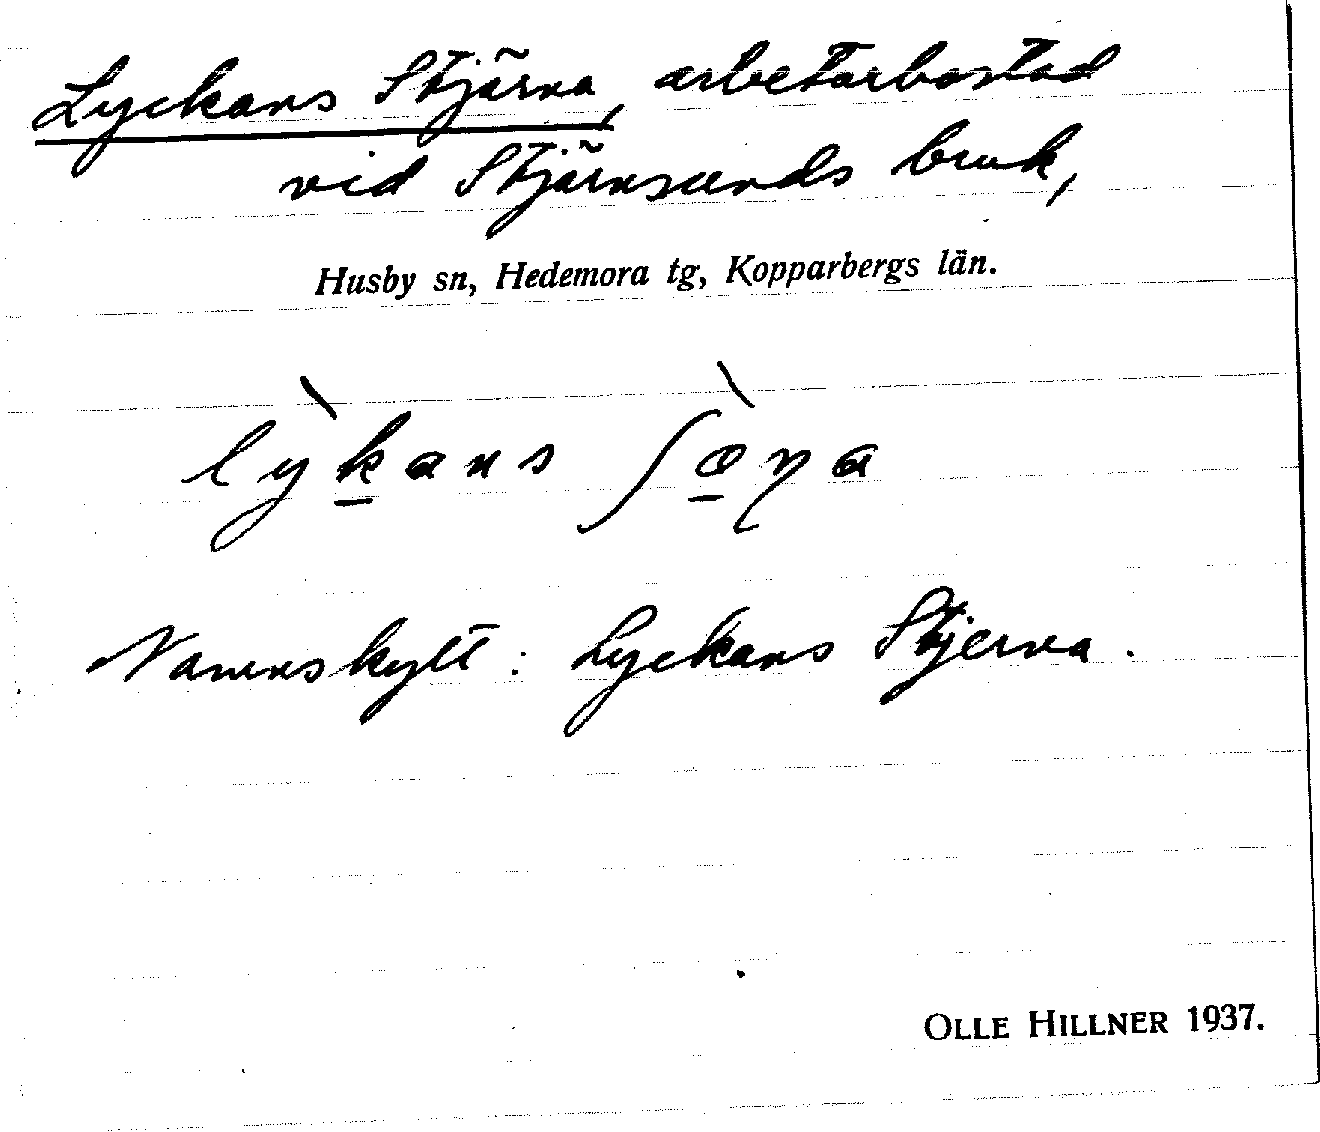 Lyckans Stjärna, arbetarbostad
vid Stjärnsunds bruk,
Husby sn, Hedemora tg, Kopparbergs län.
lỳk̲ans ʃæ̲̀ɳa
Namnskylt: Lyckans Stjerna.
OLLE HILLNER 1937.